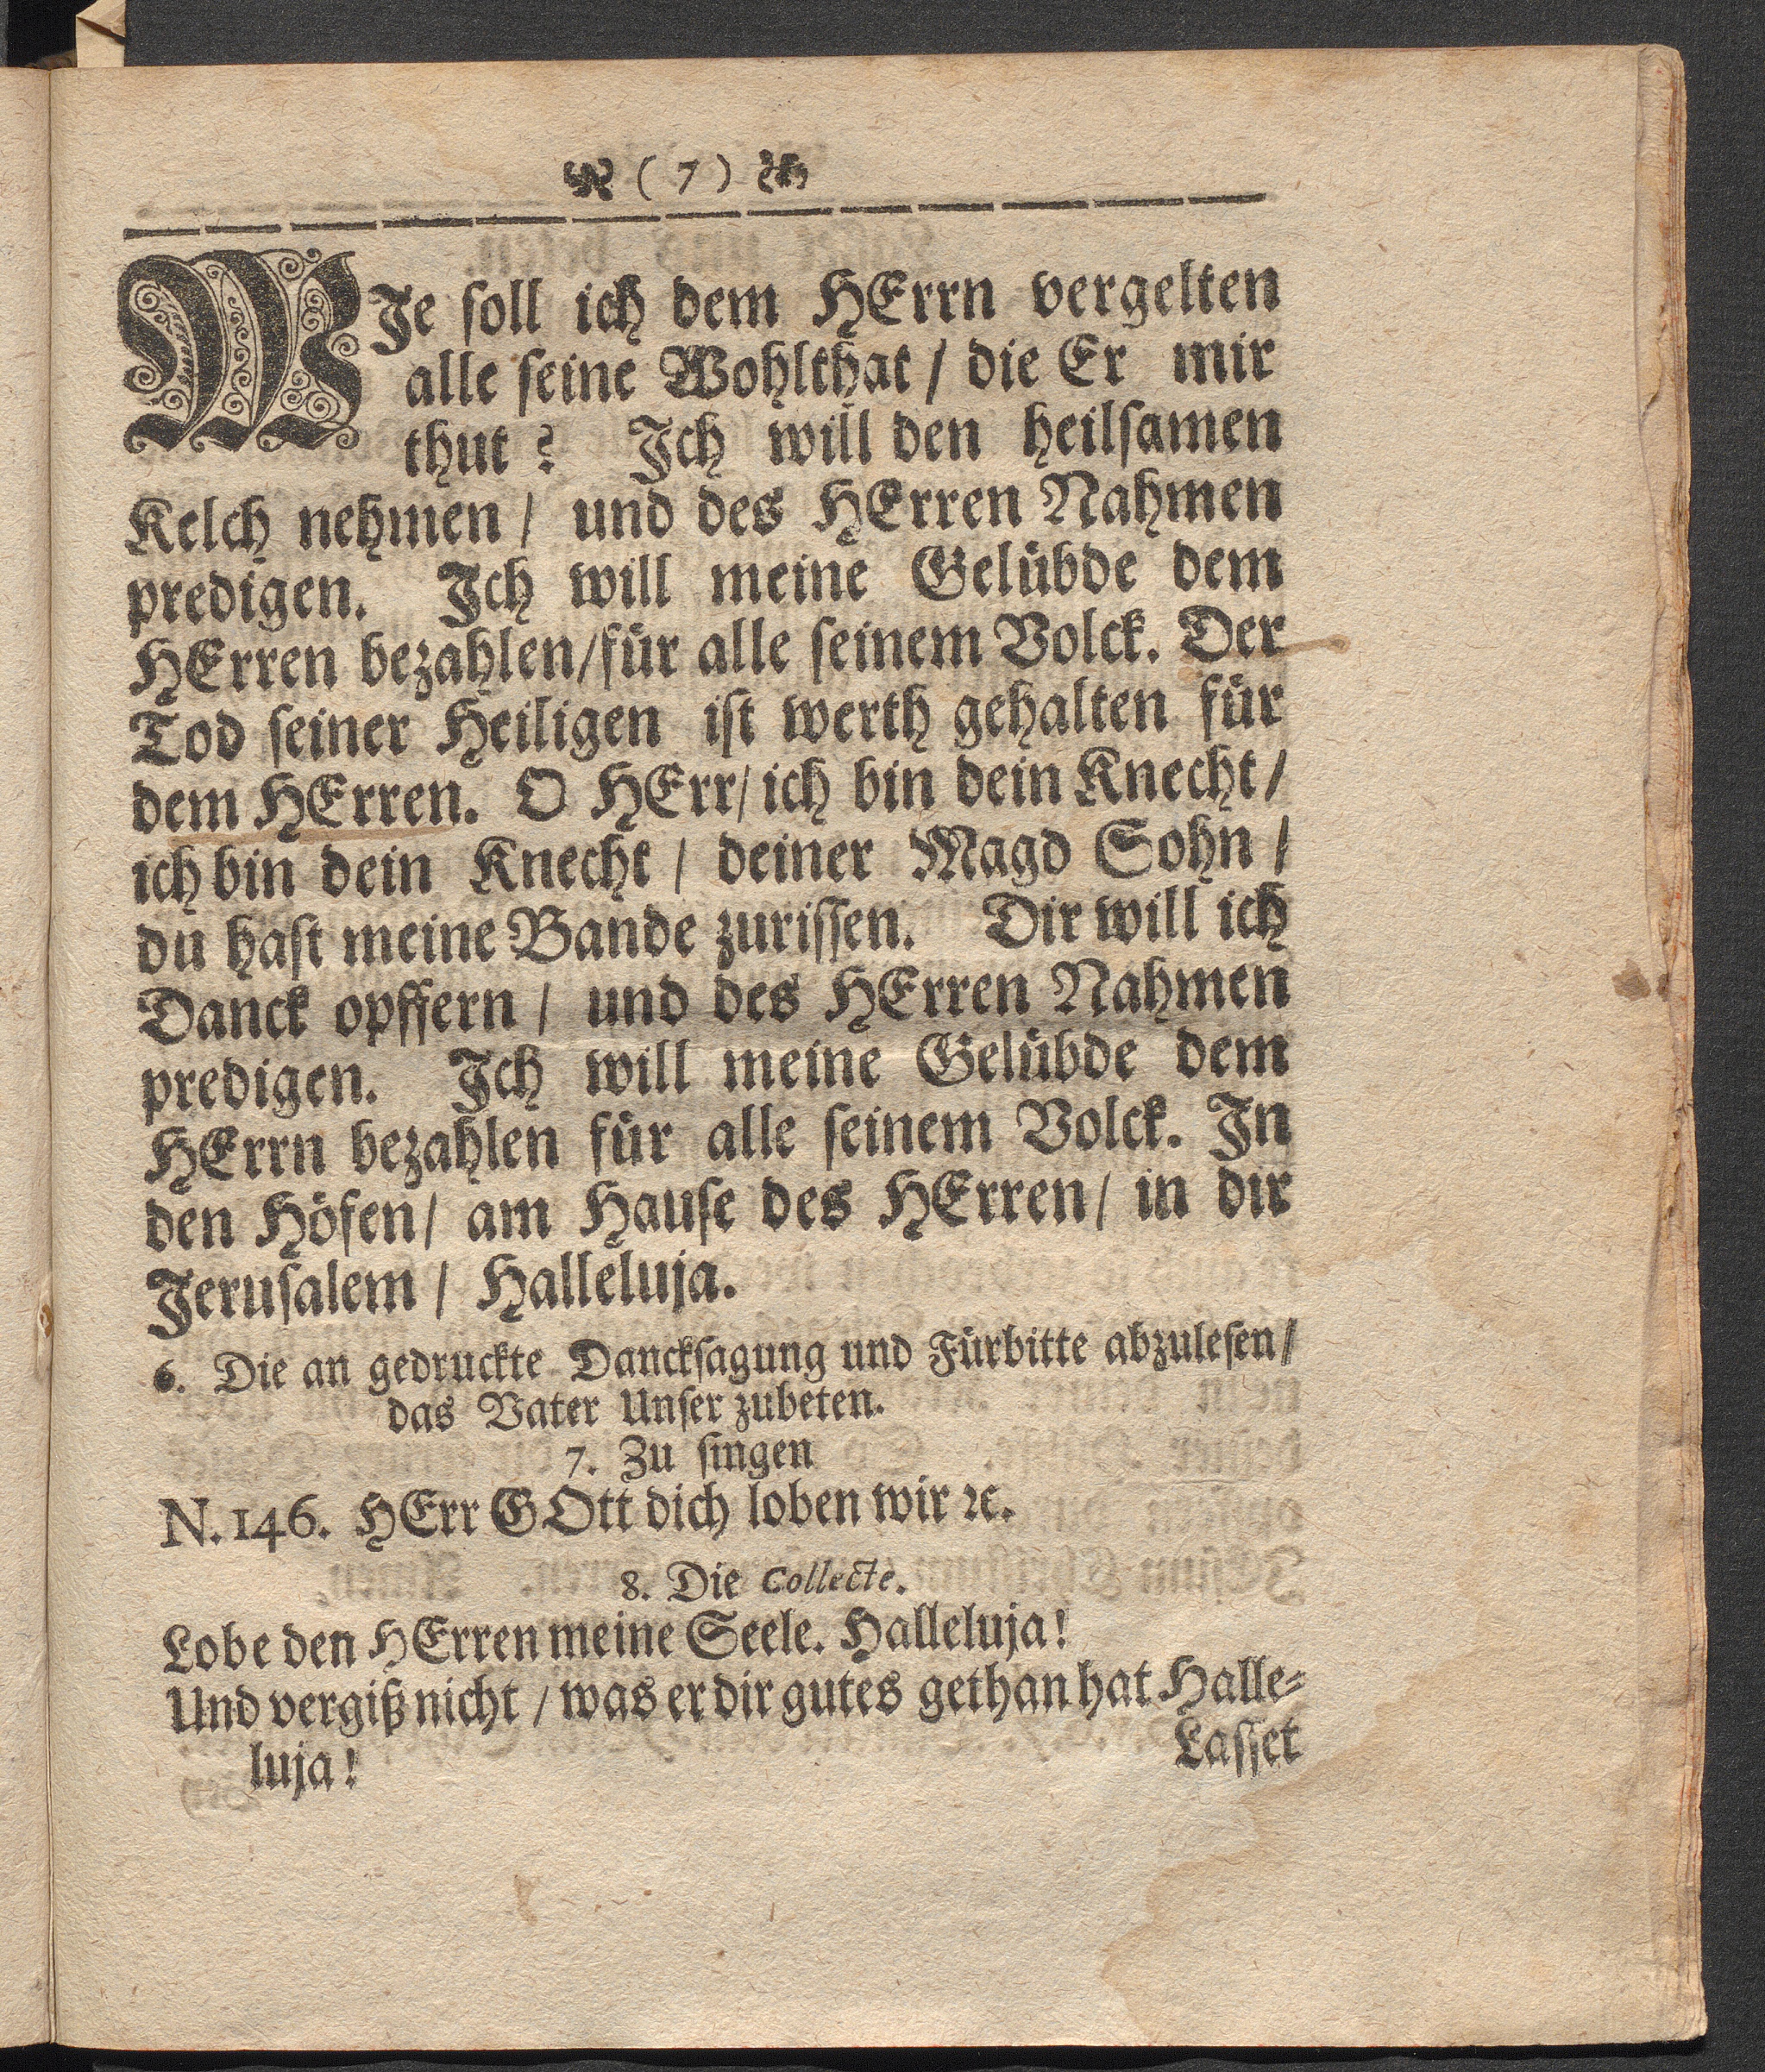 ( 7 )
WJe soll ich dem HErrn vergelten
alle seine Wohlthat / die Er mir
thut ? Jch will den heilsamen
Kelch nehmen / und des HErren Nahmen
predigen. Jch will meine Gelübde dem
HErren bezahlen/für alle seinem Volck. Der
Tod seiner Heiligen ist werth gehalten für
dem HErren. O HErr/ ich bin dein Knecht /
ich bin dein Knecht / deiner Magd Sohn /
du hast meine Bande zurissen. Dir will ich
Danck opffern / und des HErren Nahmen
predigen. Jch will meine Gelübde dem
HErrn bezahlen für alle seinem Volck. Jn
den Höfen/ am Hause des HErren/ in dir
Jerusalem / Halleluja.
6. Die an gedruckte Dancksagung und Fürbitte abzulesen/
das Vater Unser zubeten.
7. Zu singen
N. 146. HErr GOtt dich loben wir ꝛc.
8. Die Collecte.
Lobe den HErren meine Seele. Halleluja!
Und vergiß nicht / was er dir gutes gethan hat Halle-
luja!
Lasset